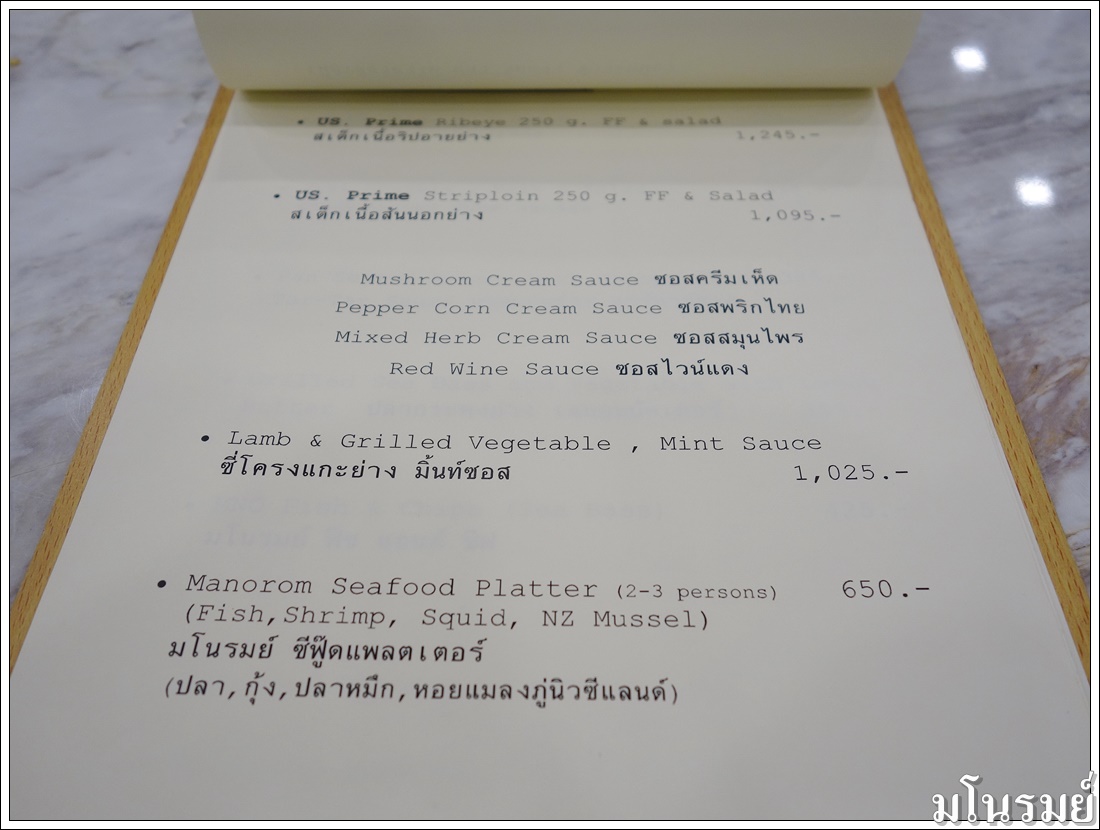 • US. Prime Ribeye 250 g. FF & salad
สเต็กเนื้อริปอายย่าง 1,245.-
• US. Prime Striploin 250 g. FF & Salad
สเต็กเนื้อสันนอกย่าง 1,095.-
Mushroom Cream Sauce ซอสครีมเห็ด
Pepper Corn Cream Sauce ซอสพริกไทย
Mixed Herb Cream Sauce ซอสสมุนไพร
Red Wine Sauce ซอสไวน์แดง
• Lamb & Grilled Vegetable , Mint Sauce
ซี่โครงแกะย่าง มิ้นท์ซอส 1,025.-
• Manorom Seafood Platter (2-3 persons) 650.-
(Fish,Shrimp, Squid, NZ Mussel)
มโนรมย์ ซีฟู๊ดแพลตเตอร์
(ปลา,กุ้ง,ปลาหมึก,หอยแมลงภู่นิวซีแลนด์)
มโนรมย์